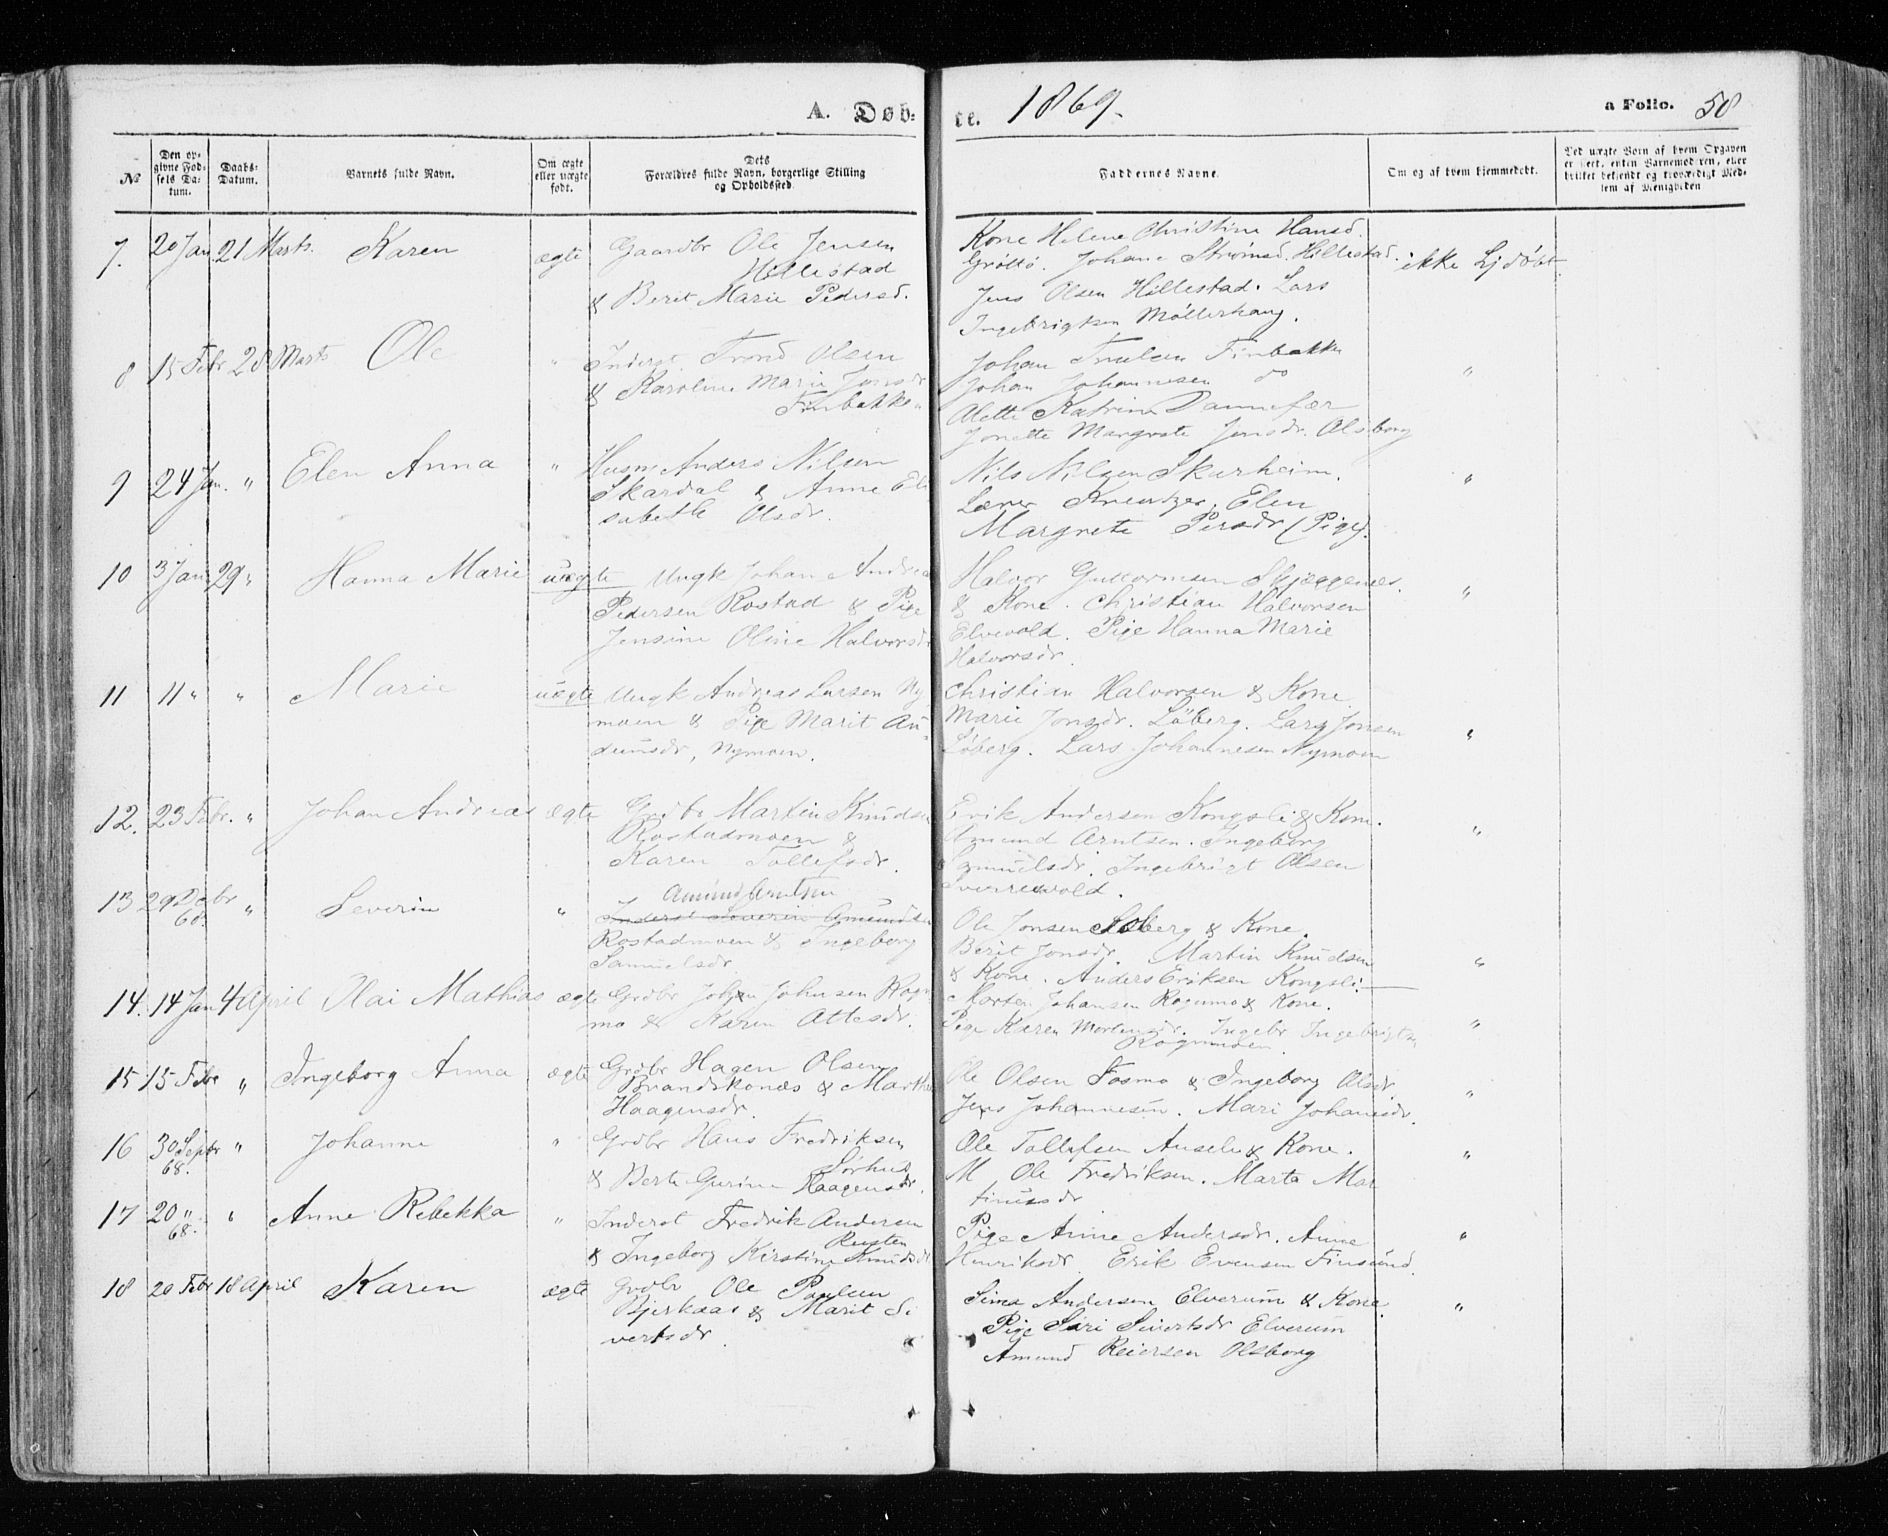 A. Døb-
te. 1869.
a Folio. 58
№
Den op-
givne Fød-
sels Da-
tum.
Daabs-
Datum.
Barnets fulde Navn.
Om ægte
eller uægte
født.
Dets
Forældres fulde Navn, borgerlige Stilling
og Opholdssted.
Faddernes Navne.
Om og af hvem hjemmedøbt.
Ved uægte Børn af hvem Opgaven
er skeet, enten Barnemoderen, eller
hvilket bekjendt og troværdigt Med-
lem af Menigheden
7. 20 Jan. 21 Marts. Karen ægte
Gaardbr Ole Jensen
Hillestad
& Berit Marie Pedersd.
Kone Helene Christine Hansd.
Grøttø. Johane Strømsd. Hillestad.
Jens Olsen Hillestad. Lars
Ingebrigtsen Møllerhaug.
ikke Hjdøbt
8 15 Febr 28 Marts Ole "
Inderst Trond Olsen
& Karoline Marie Jonsdr
Finbakke.
Johan Truelsen Finbakke
Johan Johannesen do
Alette Katrine Dannefær
Jonette Margrete Jensdr. Olsborg
"
9 24 Jan. " Elen Anna "
Husm Anders Nilsen
Skardal & Anne Eli
sabeth Olsdr.
Nils Nilsen Skarheim.
Lærer Kreutzer, Elen
Margrete Persdr (Pige).
"
10 3 Jan 29 " Hanna Marie uægte
Ungk Johan Andreas
Pedersen Rostad & Pige
Jensine Oline Halvorsdr
Halvor Guttormsen Skjæggenes.
& Kone. Christian Halvorsen
Elvevold. Pige Hanna Marie
Halvorsdr.
"
11 11 " " Marie uægte
Ungk Andreas Larsen Ny
moen & Pige Marit Au-
dunsdr, Nymoen.
Christian Halvorsen & Kone
Marie Jonsdr. Løberg. Lars Jonsen
Løberg. Lars Johannesen Nymoen
"
12. 23 Febr. " Johan Andreas ægte
Grdbr Martin Knudsen
Rostadmoen &
Karen Tollefsdr.
Erik Andersen Kongsli & Kone.
Amund Arntsen. Ingeborg
Samuelsdr. Ingebrigt Olsen
Sverrevold.
"
13 29 Decbr 68. " Severin "
Amund Arntsen
Inderst Severin Amundsen
Rostadmoen & Ingeborg
Samuelsdr.
Ole Jonsen Solberg & Kone.
Berit Jonsdr. Martin Knudsen
& Kone. Anders Eriksen Kongsli.
"
14. 14 Jan 4 April Olai Mathias ægte
Grdbr Johan Johnsen Rogn
mo & Karen Attesdr.
Morten Johansen Rognmo & Kone.
Pige Karen Mortensdr. Ingebr Ingebrigtsen
Rognmoen.
"
15 15 Febr " Ingeborg Anna ægte
Grdbr Hagen Olsen
Brandskonæs & Marthe
Haagensdr.
Ole Olsen Fosmo & Ingeborg Olsdr.
Jens Johannesen. Mari Johansdr.
"
16 30 Sepbr 68. " Johanne "
Grdbr Hans Fredriksen
Sørhus
& Berte Gurine Haagensdr.
Ole Tollefsen Anseli & Kone.
M Ole Fredriksen. Marta Mar
tinusdr
"
17 20 " 68. " Anne Rebekka "
Inderst Fredrik Andersen
Rusten
& Ingeborg Kirstine Knudsdr
Pige Anne Andersdr. Anne
Henriksdr. Erik Evensen Finsund.
"
18 20 Febr 18 April Karen ægte
Grdbr Ole Paulsen
Bjerkaas & Marit Si
vertsdr.
Simo Andersen Elverum & Kone.
Pige Siri Sivertsdr Elverum
Amund Reiersen Olsborg
"